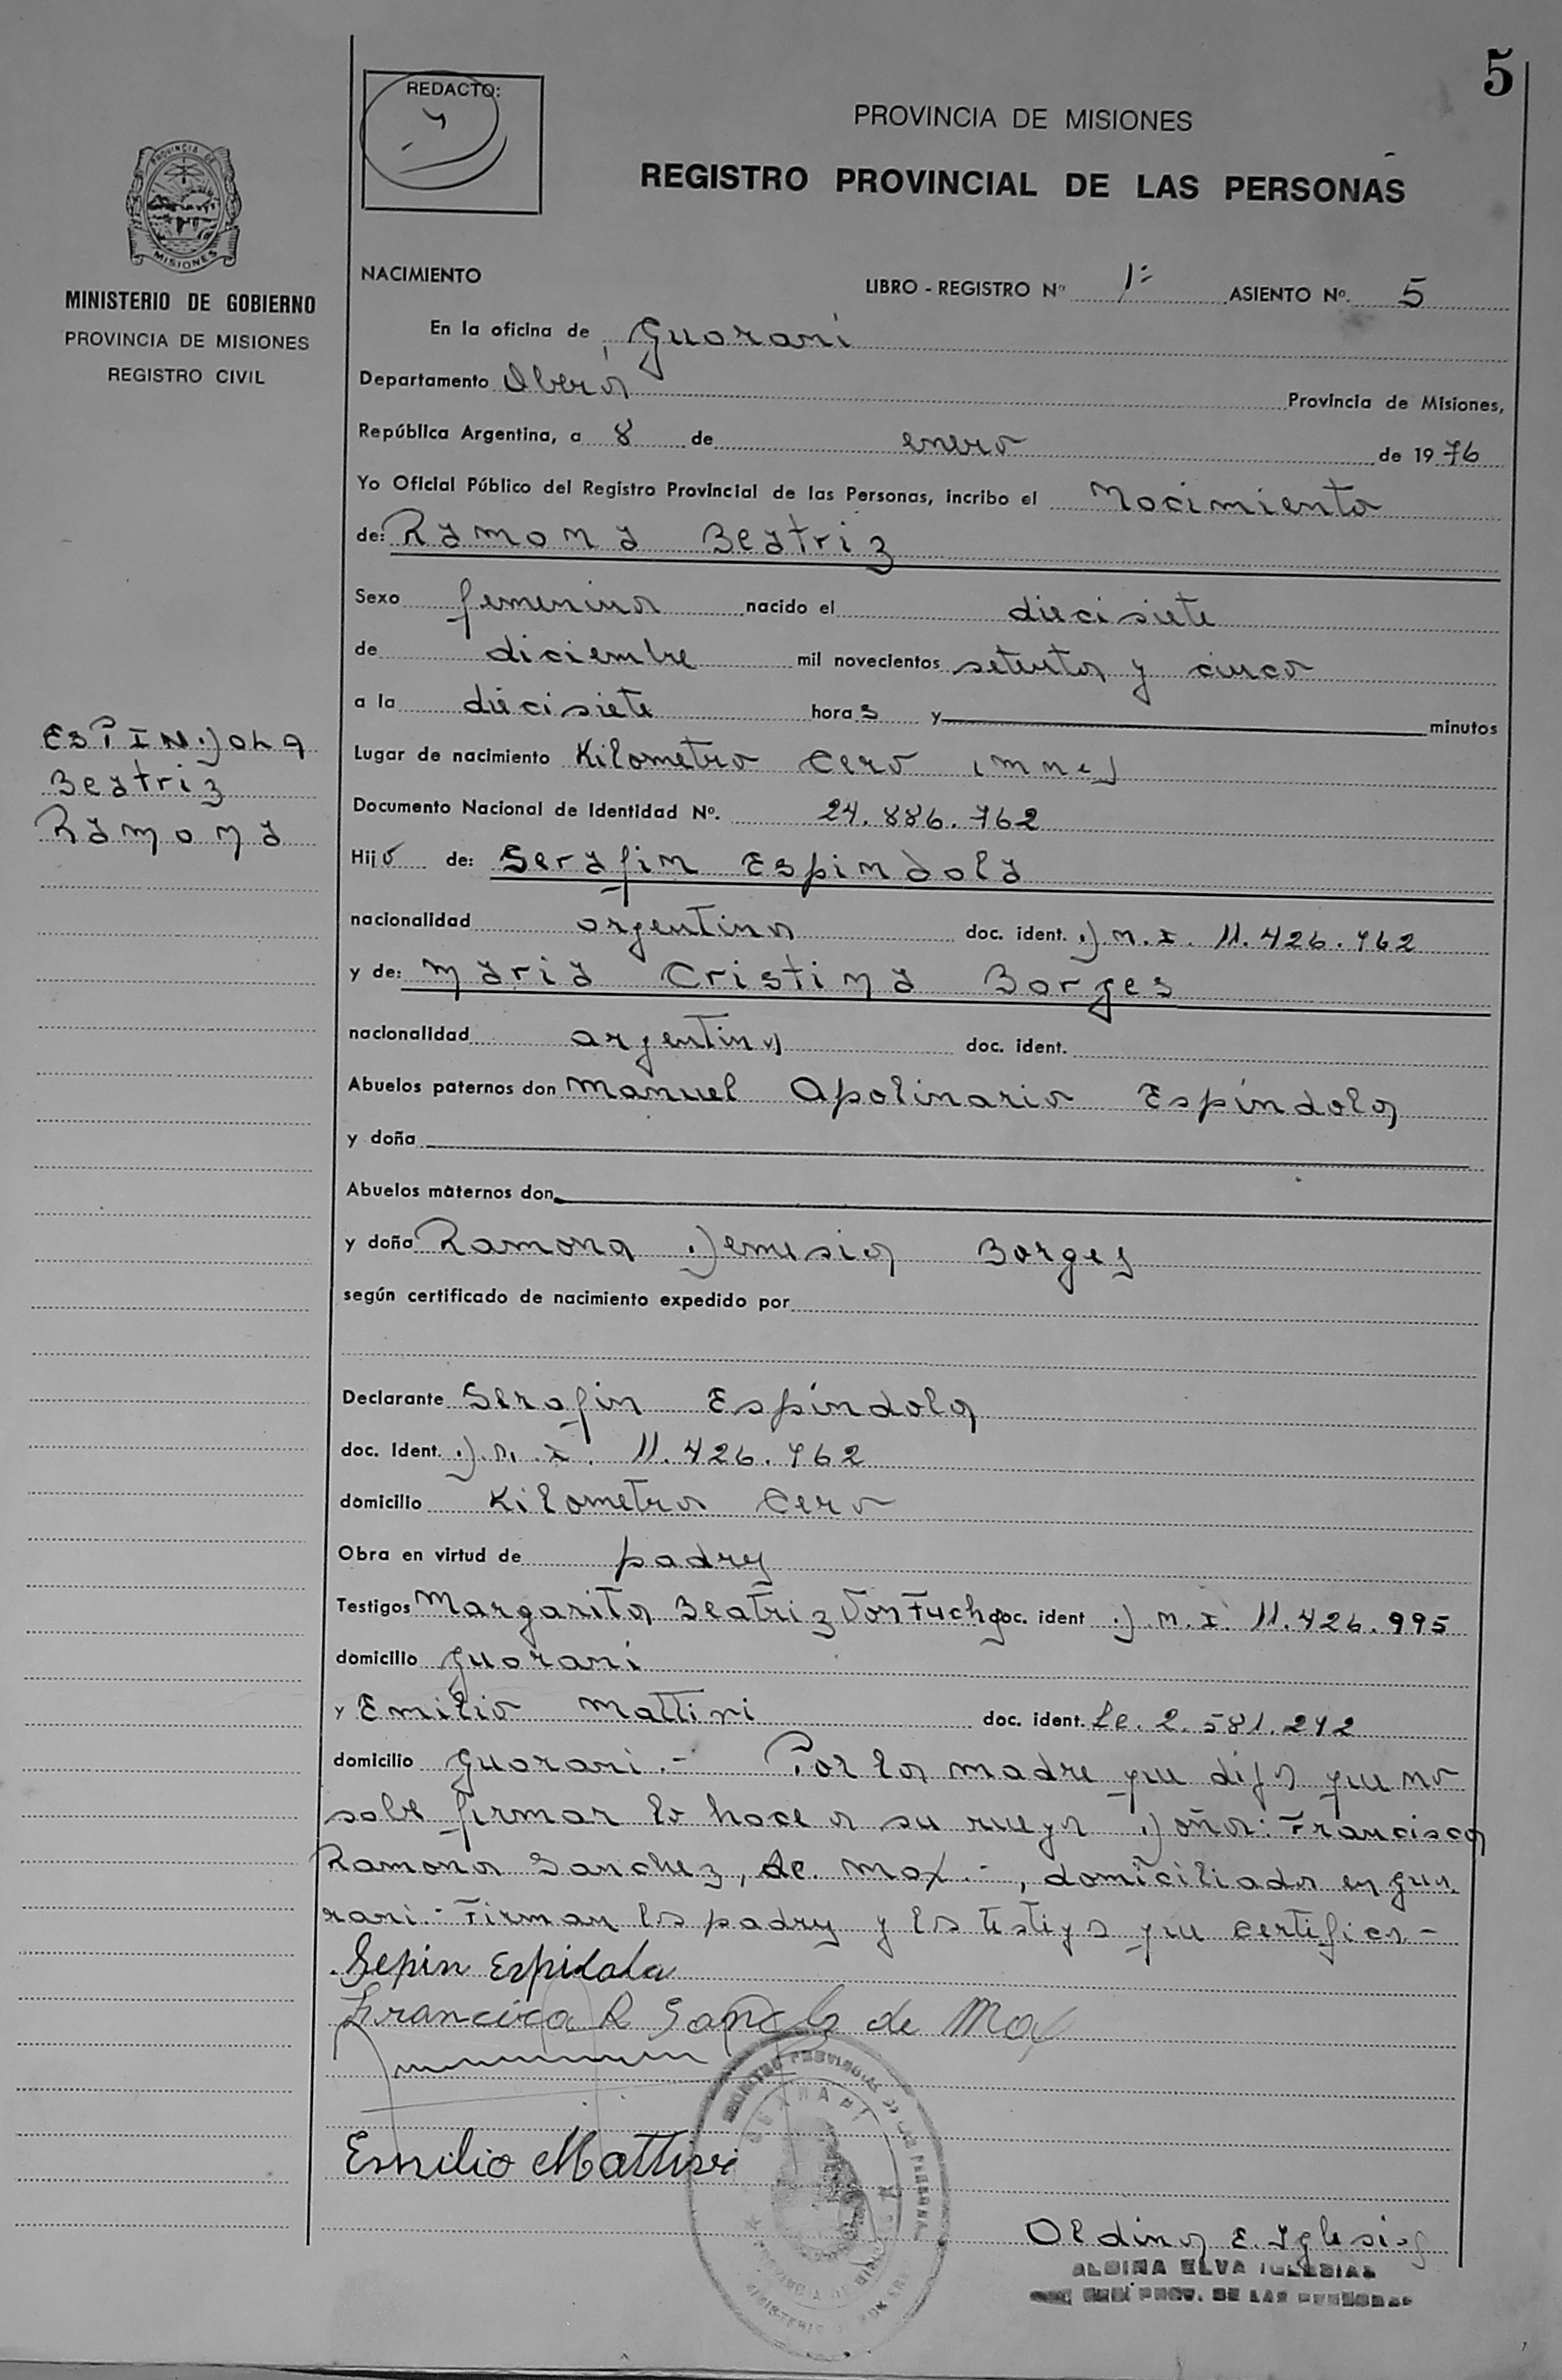 5
REDACTO:
PROVINCIA DE MISIONES
REGISTRO PROVINCIAL DE LAS PERSONAS
PROVINCIA DE MISIONES
MINISTERIO DE GOBIERNO
PROVINCIA DE MISIONES
REGISTRO CIVIL
ESPINDOLA
Beatriz
Ramona
NACIMIENTO LIBRO - REGISTRO Nº 1º ASIENTO Nº. 5
En la oficina de Guaraní
Departamento Oberá Provincia de Misiones,
República Argentina, a 8 de enero de 1976
Yo Oficial Público del Registro Provincial de las Personas, incribo el Nacimiento
de: Ramona Beatriz
Sexo femenino nacido el diecisiete
de diciembre mil novecientos setenta y cinco
a la diecisiete horas y minutos
Lugar de nacimiento Kilometro Cero (Mnes)
Documento Nacional de Identidad Nº. 24.886.762
Hij de: Serafin Espindola
nacionalidad argentina doc. ident. D.N.I. 11.426.762
y de: Maria Cristina Borges
nacionalidad argentina doc. ident.
Abuelos paternos don Manuel Apolinario Espíndola
y doña
Abuelos maternos don
y doña Ramona Demesia Borges
según certificado de nacimiento expedido por
Declarante Serafin Espíndola
doc. Ident. D.N.I. 11.426.762
domicilio Kilometro Cero
Obra en virtud de padre
Testigos Margarita Beatriz Von Fuchs doc. ident D.N.I. 11.426.995
domicilio Guaraní
y Emilio Mattivi doc. ident. Le. 2.581.242
domicilio Guaraní.- Por la madre que dijo que no
sabe firmar lo hace a su ruego Doña: Francisca
Ramona Sanchez, de Max.-, domiciliada en Gua
raní.- Firman los padres y los testigos que certifico.-
Sepin Espidola
Francisca R Sanchez de Max
Emilio Mattivi
REGISTRO PROVINCIAL DE LAS PERSONAS
GUARANI
Aldina E. Iglesias
ALDINA ELVA IGLESIAS
PROV. DE LAS PERSONAS